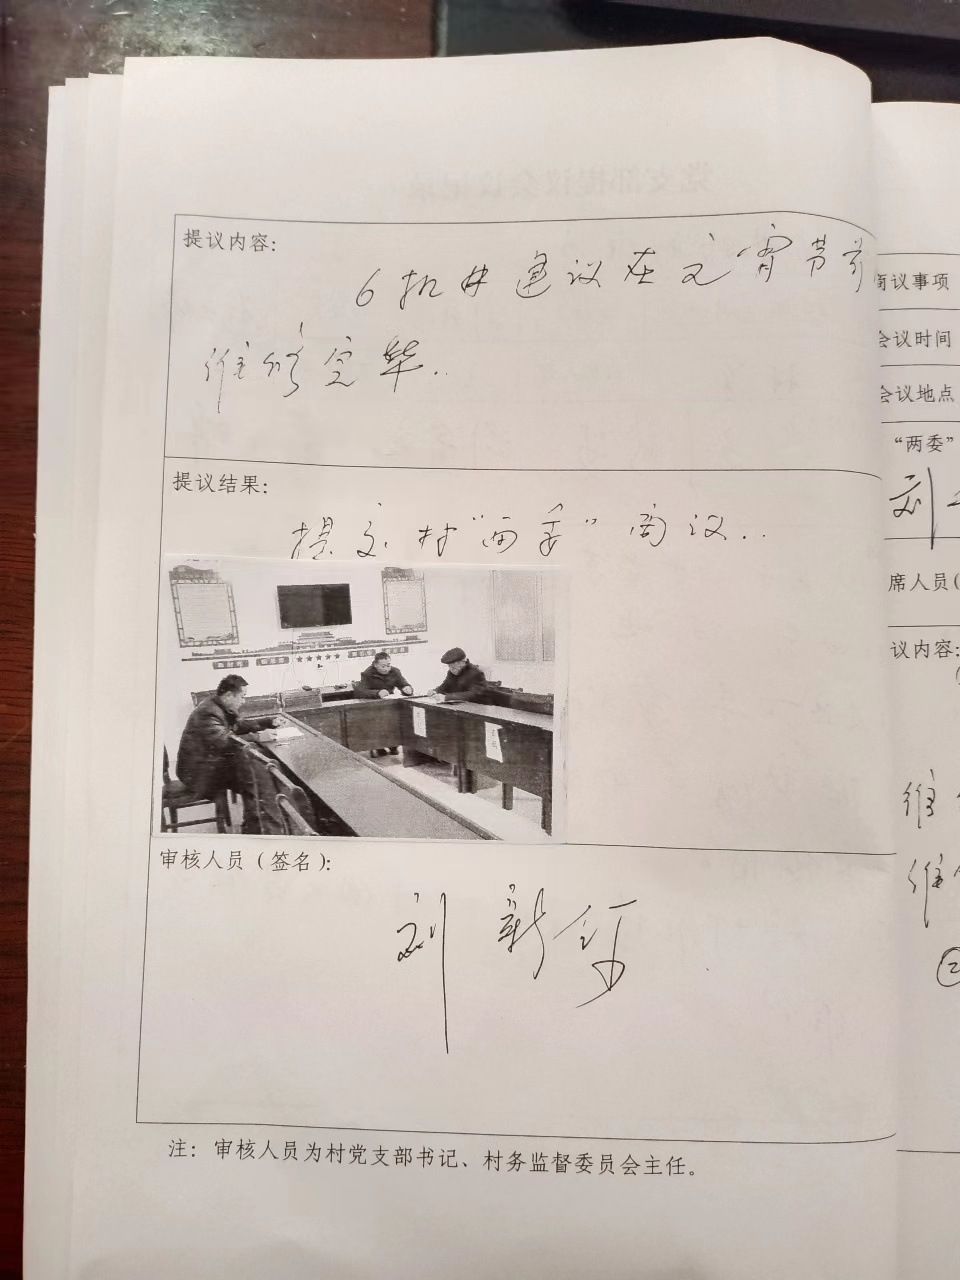 提议内容:
6机井建议在元宵节前
维修完毕..
提议结果:
提交村“两委”商议..
审核人员（签名）:
刘新
注：审核人员为村党支部书记、村务监督委员会主任。
商议事项
会议时间
会议地点
“两委”
刘
席人员(
议内容:
维
维
②